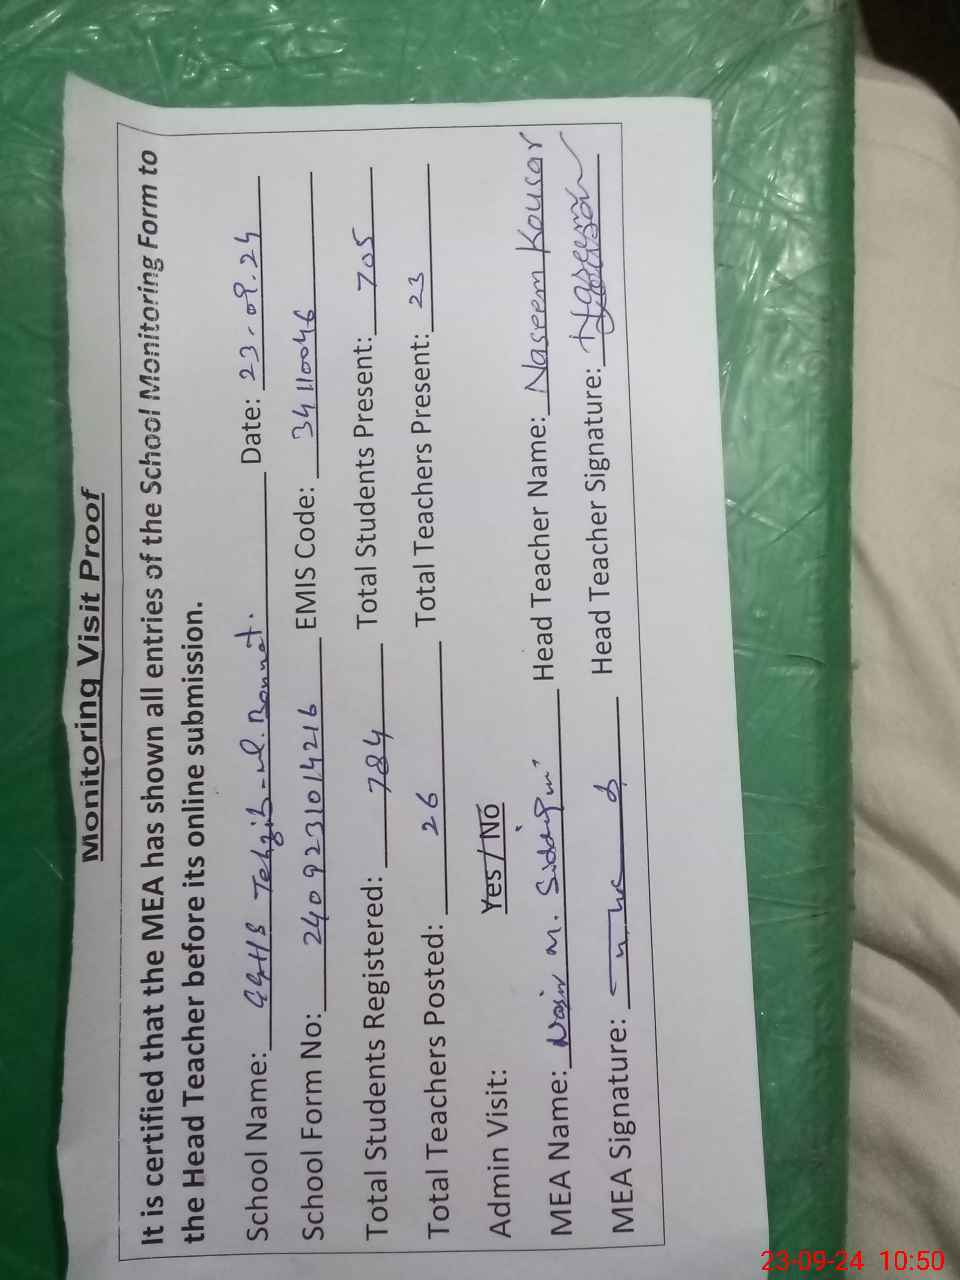 Monitoring Visit Proof
It is certified that the MEA has shown all entries of the School Monitoring Form to
the Head Teacher before its online submission.
School Name: GGHS Tehzib-ul-Bannat. Date: 23-09-24
School Form No: 2409231014216 EMIS Code: 34110046
Total Students Registered: 784 Total Students Present: 705
Total Teachers Posted: 26 Total Teachers Present: 23
Admin Visit: Yes / No
MEA Name: M. Head Teacher Name: Naseem Kousar
MEA Signature: Head Teacher Signature: Naseem
23-09-24 10:50